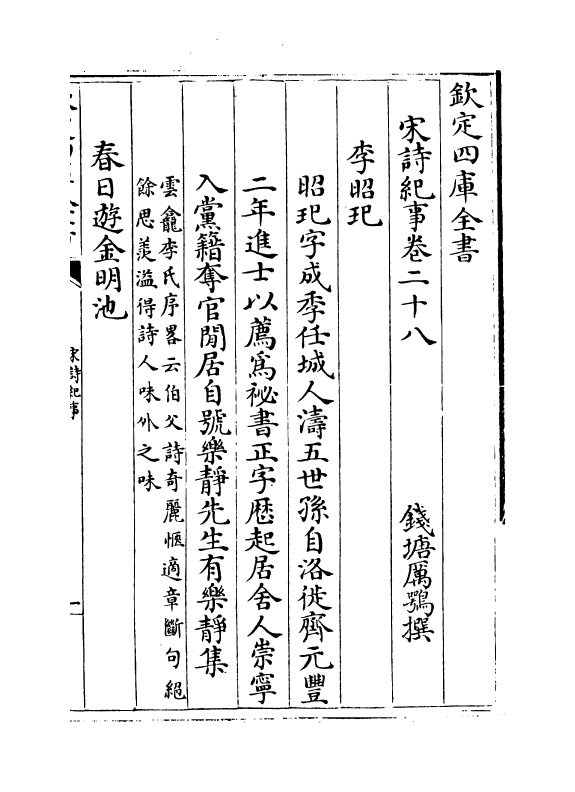 欽定四庫全書
宋詩紀事卷二十八
錢塘厲鶚撰
李昭玘
昭玘字成季任城人濤五世孫自洛徙齊元豐
二年進士以薦為祕書正字歴起居舍人崇寧
入黨籍奪官閒居自號樂靜先生有樂靜集
雲龕李氏序畧云伯父詩奇麗愜適章斷句絕
餘思羨溢得詩人味外之味
春日遊金明池
宋詩紀事
一